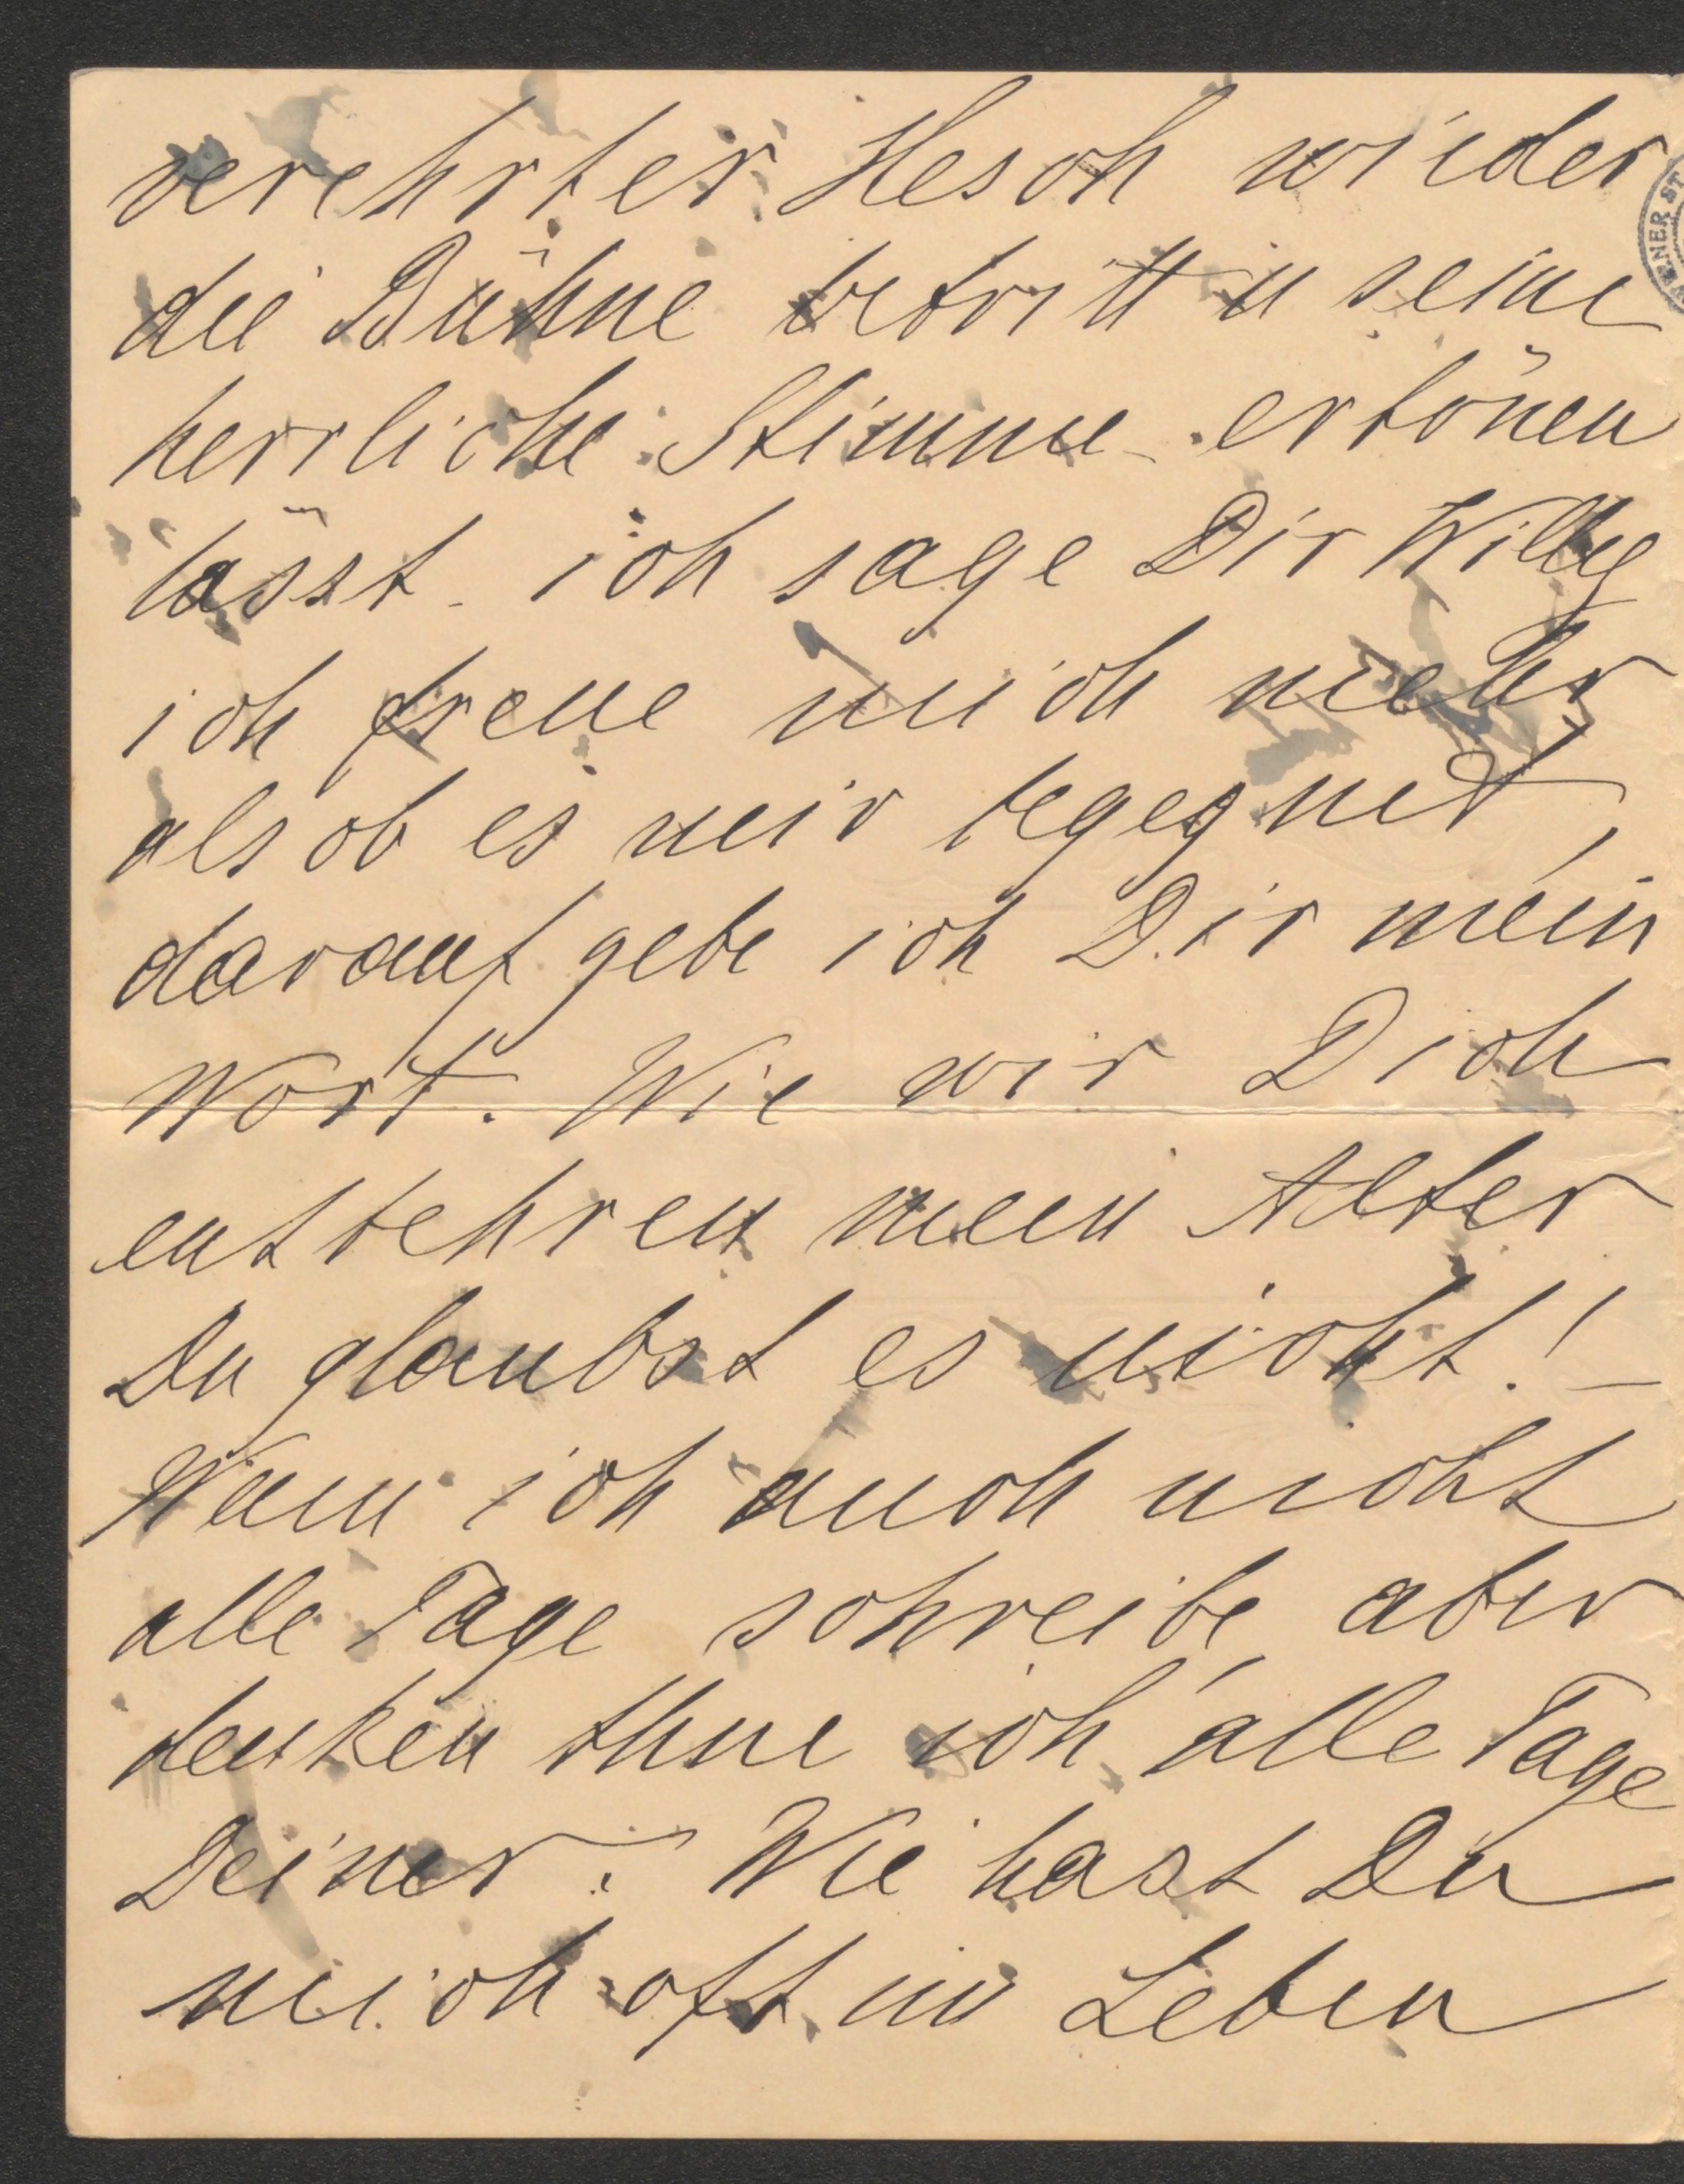 verehrter Hesch wieder
die Bühne betritt u seine
herrliche Stimme ertönen
lässt. ich sage Dir Willy
ich freue mich mehr
als ob es mir begegnet,
darauf gebe ich Dir mein
Wort. Wie wir Dich
entbehren mein Alter
Du glaubst es nicht! –
Wenn ich auch nicht
alle Tage schreibe, aber
denken thue ich alle Tage
Deiner. Wie hast Du
mich oft im Leben